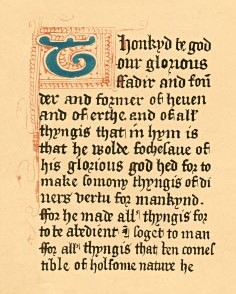 Thonkyd be god
our glorious
ffadir and foū
der and former of heuen
and of erthe. and of all
thyngis that in hym is
that he wolde fochesaue of
his glorious god hed for to
make somony thyngis of di
uers vertu for mankynd.
ffor he made all thyngis for
to be abedient & soget to man
ffor all thyngis that ben comes
tible of holsome nature he